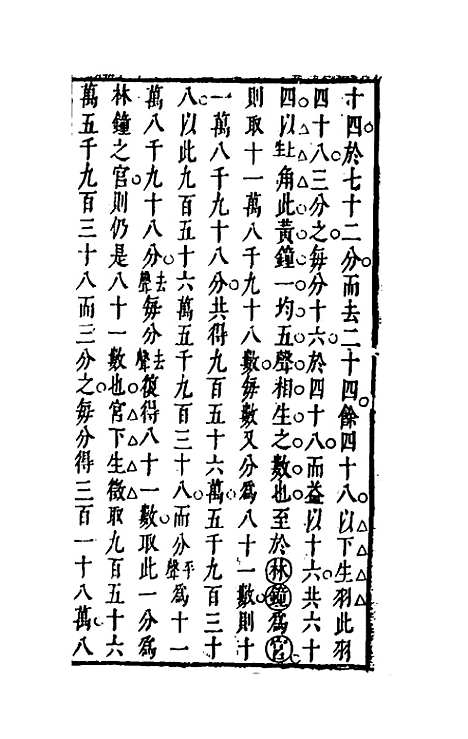 十四於七十二分而去二十四餘四十八以下生羽此羽
四十八三分之每分十六於四十八而益以十六共六十
四以上生角此黃鐘一均五聲相生之數也至於林鐘爲宮
則取十一萬八千九十八數每數又分爲八十一數則十
一萬八千九十八分共得九百五十六萬五千九百三十
八以此九百五十六萬五千九百三十八而分平聲爲十一
萬八千九十八分去聲每分去聲復得八十一數取此一分爲
林鐘之宮則仍是八十一數也宮下生徵取九百五十六
萬五千九百三十八而三分之每分得三百一十八萬八